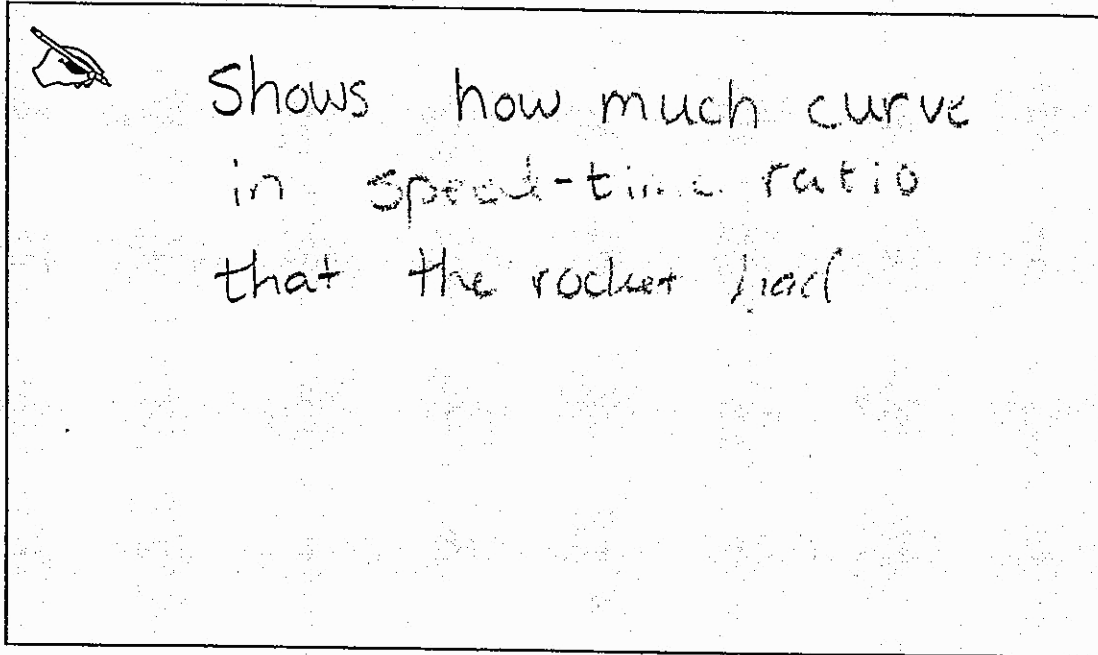 Shows how much curve
in speed-time ratio
that the rocket had